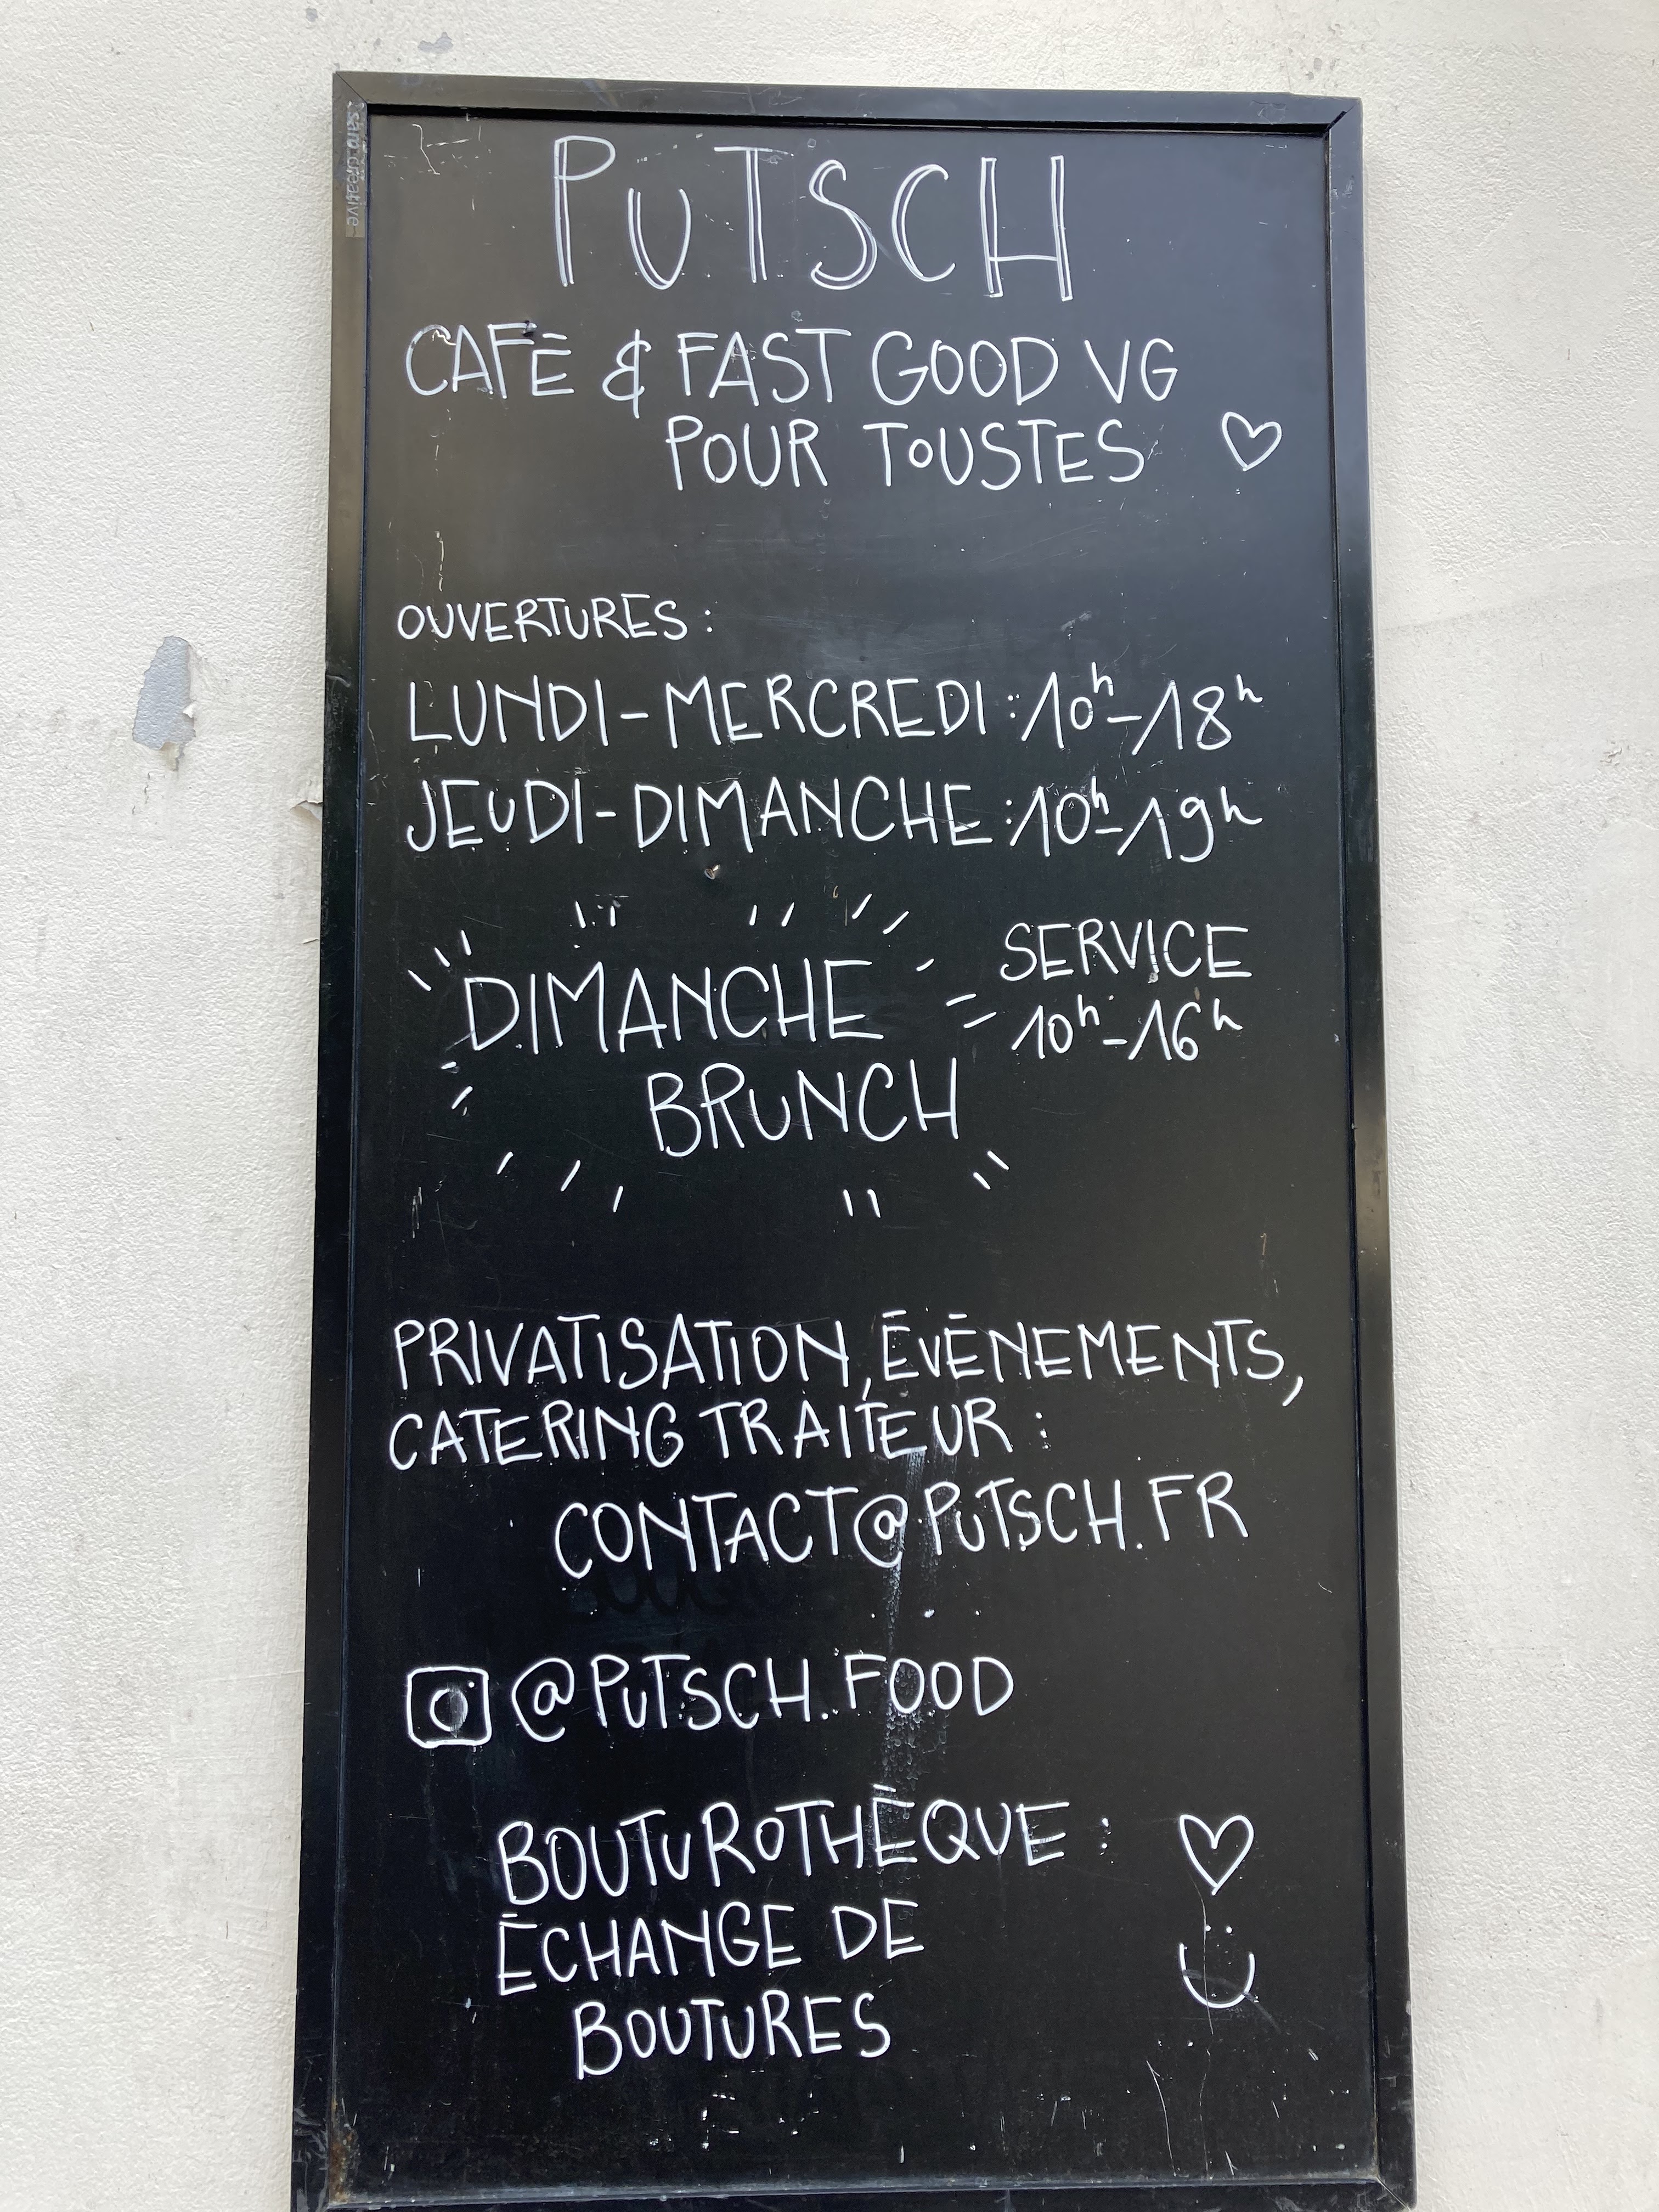 sam creative
PUTSCH
CAFÉ & FAST GOOD VG
POUR TOUSTES
OUVERTURES :
LUNDI-MERCREDI : 10h-18h
JEUDI-DIMANCHE : 10h-19h
DIMANCHE
BRUNCH
SERVICE
10h-16h
PRIVATISATION, ÉVÉNEMENTS,
CATERING TRAITEUR :
CONTACT@PUTSCH.FR
@PUTSCH.FOOD
BOUTUROTHÈQUE :
ÉCHANGE DE
BOUTURES